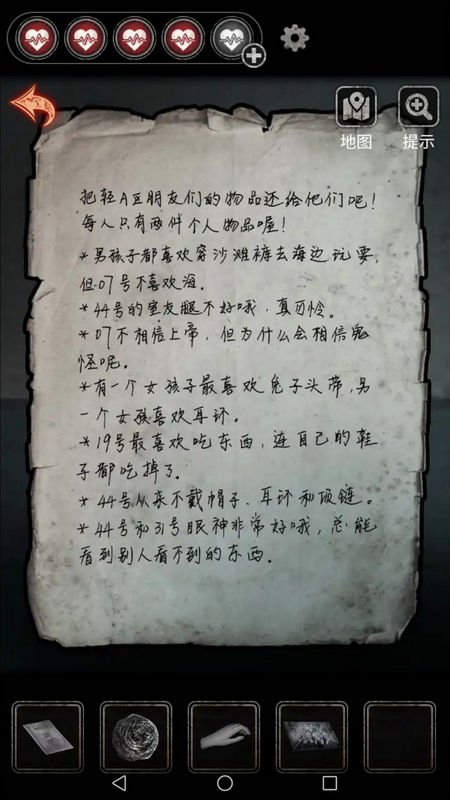 地图
提示
把轻A豆朋友们的物品还给他们吧!
每人只有两件个人物品喔!
*男孩子都喜欢穿沙滩裤去海边玩耍,
但07号不喜欢海。
*44号的室友腿不好哦,真可怜。
*07不相信上帝,但为什么会相信鬼
怪呢。
*有一个女孩子最喜欢兔子头带,另
一个女孩喜欢耳环。
*19号最喜欢吃东西,连自己的鞋
子都吃掉了。
*44号从来不戴帽子、耳环和项链。
*44号和31号眼神非常好哦,总能
看到别人看不到的东西。